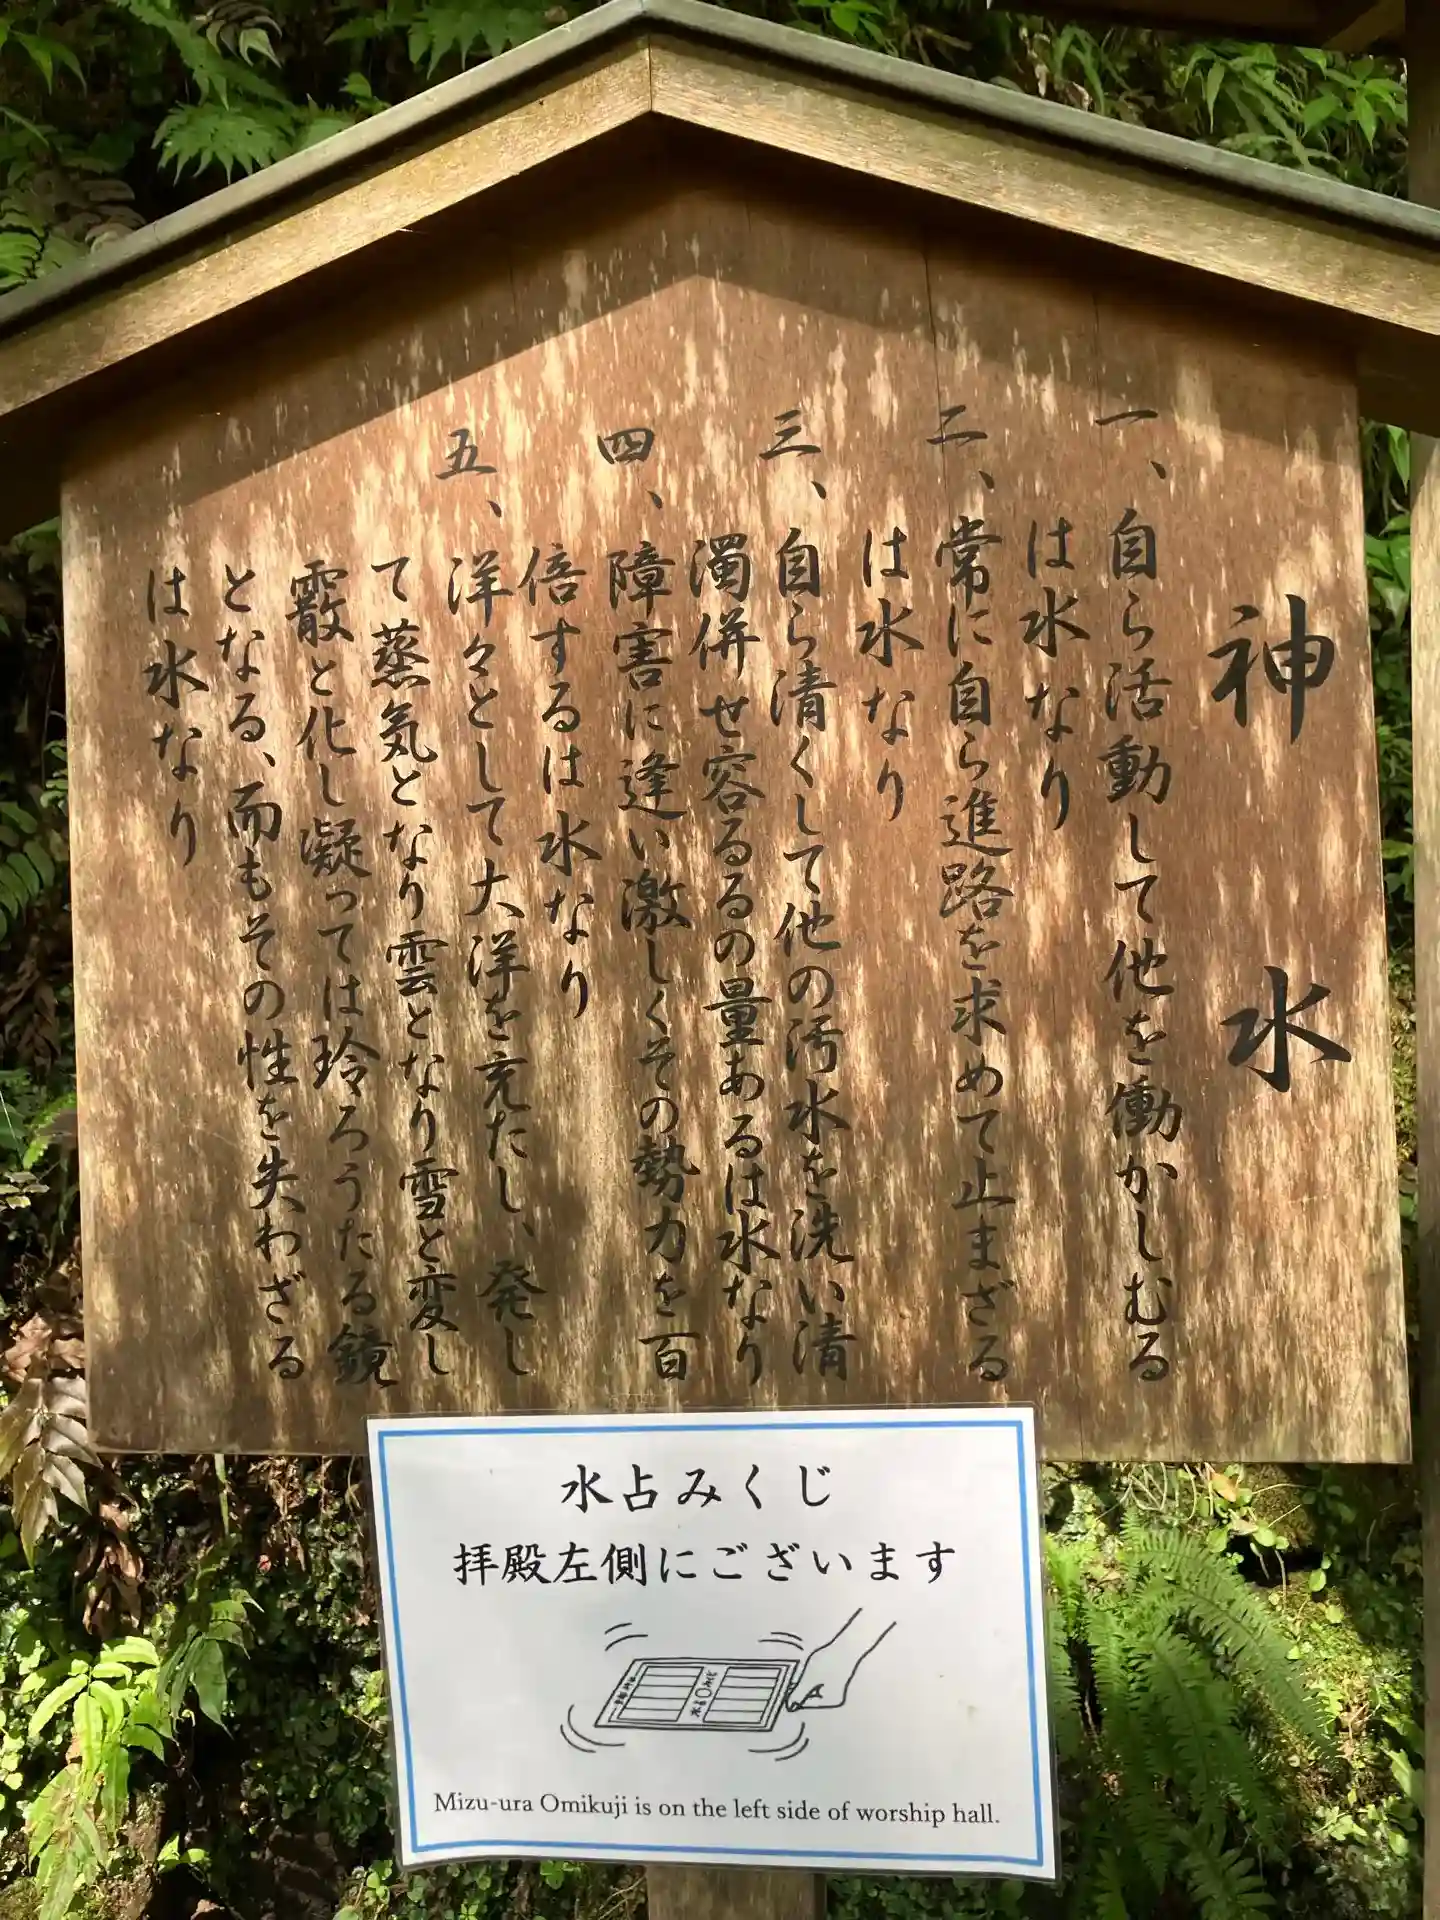 神水
一、自ら活動して他を働かしむる
は水なり
二、常に自ら進路を求めて止まざる
は水なり
三、自ら清くして他の汚水を洗い清
濁併せ容るるの量あるは水なり
四、障害に逢い激しくその勢力を百
倍するは水なり
五、洋々として大洋を充たし、発し
て蒸気となり雲となり雪と変し
霰と化し凝っては玲ろうたる鏡
となる、而もその性を失わざる
は水なり
水占みくじ
拝殿左側にございます
水占みくじ
Mizu-ura Omikuji is on the left side of worship hall.